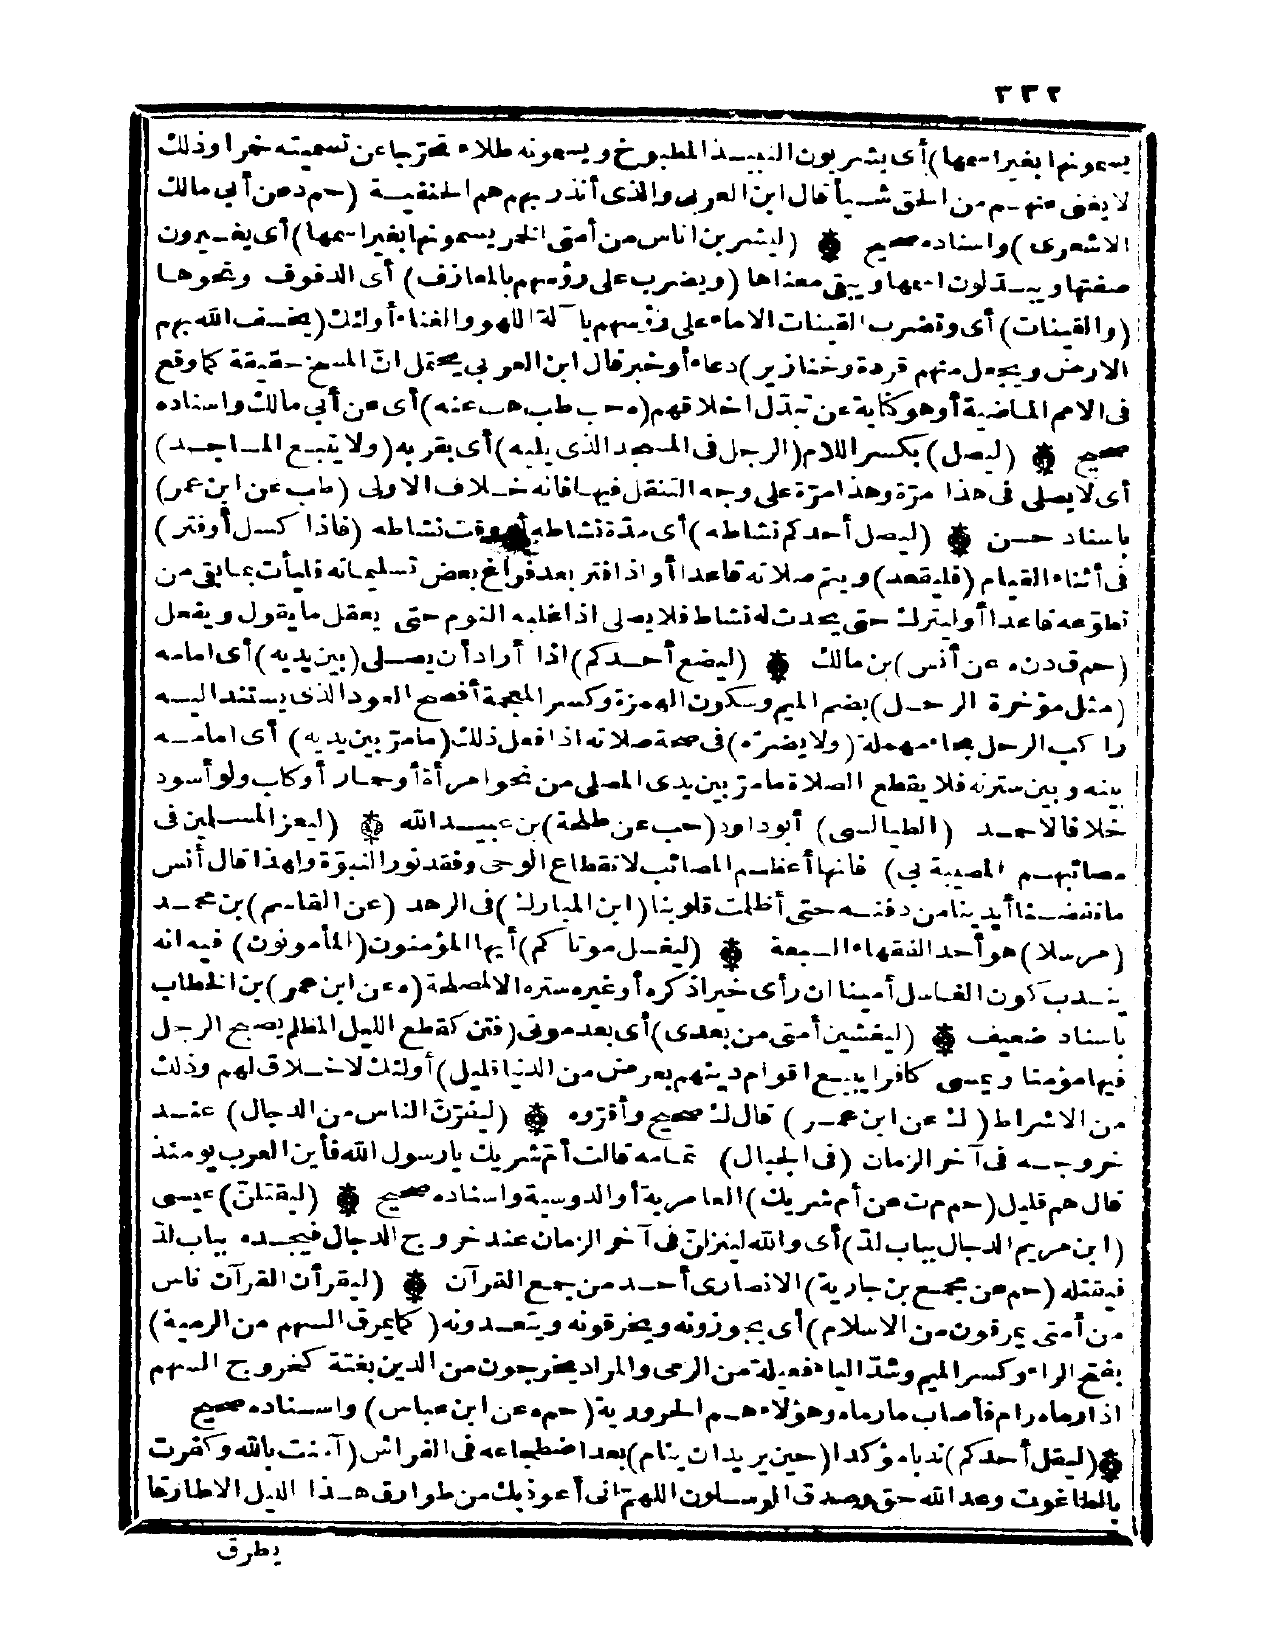 ٣٣٢
يسمونها بغير اسمها) أى يشربون النبيذ المطبوخ ويسمونه طلاء تحرّجا عن تسميته خمرا وذلك
لا يغنى عنهم من الحق شيأ قال ابن العربى والذى أنذر بهم هم الحنفية (حم د عن أبي مالك
الاشعرى) واسناده صحيح ۞ (ليشربن اناس من أمتى الخمر يسمونها بغير اسمها) أى يغيرون
صفتها ويبدّلون اسمها ويبقى معناها (ويضرب على رؤسهم بالمعازف) أى الدفوف ونحوها
(والقينات) أى وتضرب القينات الاماء على رؤسهم بآلة اللهو والغناء أولئك (يخسف الله بهم
الارض ويجعل منهم قردة وخنازير) دعاء أو خبر قال ابن العربي يحتمل انّ المسخ حقيقة كما وقع
فى الامم الماضية أو هو كناية عن تبدّل اخلاقهم (ه حب طب هب عنه) أى عن أبي مالك واسناده
صحيح ۞ (ليصل) بكسر اللام (الرجل فى المسجد الذى يليه) أى بقربه (ولا يتبع المساجد)
أى لا يصلى فى هذا مرّة وهذا مرّة على وجه التنقل فيها فانه خلاف الاولى (طب عن ابن عمر)
باسناد حسن ۞ (ليصل أحدكم نشاطه) أى مدّة نشاطه أو وقت نشاطه (فاذا كسل أو فتر)
فى أثناء القيام (فليقعد) ويتم صلاته قاعدا أو اذا فتر بعد فراغ بعض تسليماته فليأت بما بقى من
تطوّعه قاعدا أو ليترك حتى يحدث له نشاط فلا يصلى اذا غلبه النوم حتى يعقل ما يقول ويفعل
(حم ق د ن ه عن أنس) بن مالك ۞ (ليضع أحدكم) اذا أراد أن يصلى (بين يديه) أى امامه
(مثل مؤخرة الرحل) بضم الميم وسكون الهمزة وكسر المعجمة أفصح العود الذى يستند اليه
راكب الرحل بحاء مهملة (ولا يضرّه) فى صحة صلاته اذا فعل ذلك (ما مرّ بين يديه) أى امامه
بينه وبين سترته فلا يقطع الصلاة ما مرّ بين يدى المصلى من نحو امرأة أو حمار أو كلب ولو أسود
خلافا لاحمد (الطيالسى) أبو داود (حب عن طلحة) بن عبيد الله ۞ (ليعز المسلمين فى
مصائبهم المصيبة بي) فانها أعظم المصائب لانقطاع الوحى وفقد نور النبوّة ولهذا قال أنس
ما نفضنا أيدينا من دفنه حتى أظلمت قلوبنا (ابن المبارك) فى الزهد (عن القاسم) بن محمد
(مرسلا) هو أحد الفقهاء السبعة ۞ (ليغسل موتاكم) أيها المؤمنون (المأمونون) فيه انه
يندب كون الغاسل أمينا ان رأى خيرا ذكره أو غيره ستره الا لمصلحة (ه عن ابن عمر) بن الخطاب
باسناد ضعيف ۞ (ليغشين أمتى من بعدى) أى بعد موتى (فتن كقطع الليل المظلم يصبح الرجل
فيها مؤمنا ويمسى كافرا يبيع اقوام دينهم بعرض من الدنيا قليل) أولئك لا خلاق لهم وذلك
من الاشراط (ك عن ابن عمر) قال ك صحيح وأقرّوه ۞ (ليفرّنّ الناس من الدجال) عند
خروجه فى آخر الزمان (فى الجبال) تمامه قالت أم شريك يا رسول الله فأين العرب يومئذ
قال هم قليل (حم م ت عن أم شريك) العامرية أو الدوسية واسناده صحيح ۞ (ليقتلنّ) عيسى
(ابن مريم الدجال بباب لدّ) أى والله لينزلنّ فى آخر الزمان عند خروج الدجال فيجده بباب لدّ
فيقتله (حم عن مجمع بن جارية) الانصارى أحد من جمع القرآن ۞ (ليقرأن القرآن ناس
من أمتى يمرقون من الاسلام) أى يجوزونه ويخرقونه ويتعدونه (كما يمرق السهم من الرمية)
بفتح الراء وكسر الميم وشدّ الياء فعيلة من الرمى والمراد يخرجون من الدين بغتة كخروج السهم
اذا رماه رام فأصاب ما رماه وهؤلاء هم الحرورية (حم ه عن ابن عباس) واسناده صحيح
۞ (ليقل أحدكم) ندبا مؤكدا (حين يريد ان ينام) بعد اضطجاعه فى الفراش (آمنت بالله وكفرت
بالطاغوت وعد الله حق وصدق المرسلون اللهمّ انى أعوذ بك من طوارق هذا الليل الا طارقا
يطرق